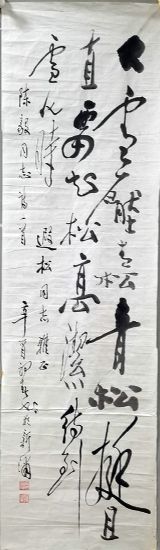 大雪压青松青松挺且
直要知松高洁待到
雪化时
陈毅同志诗一首
遐松同志雅正
辛酉